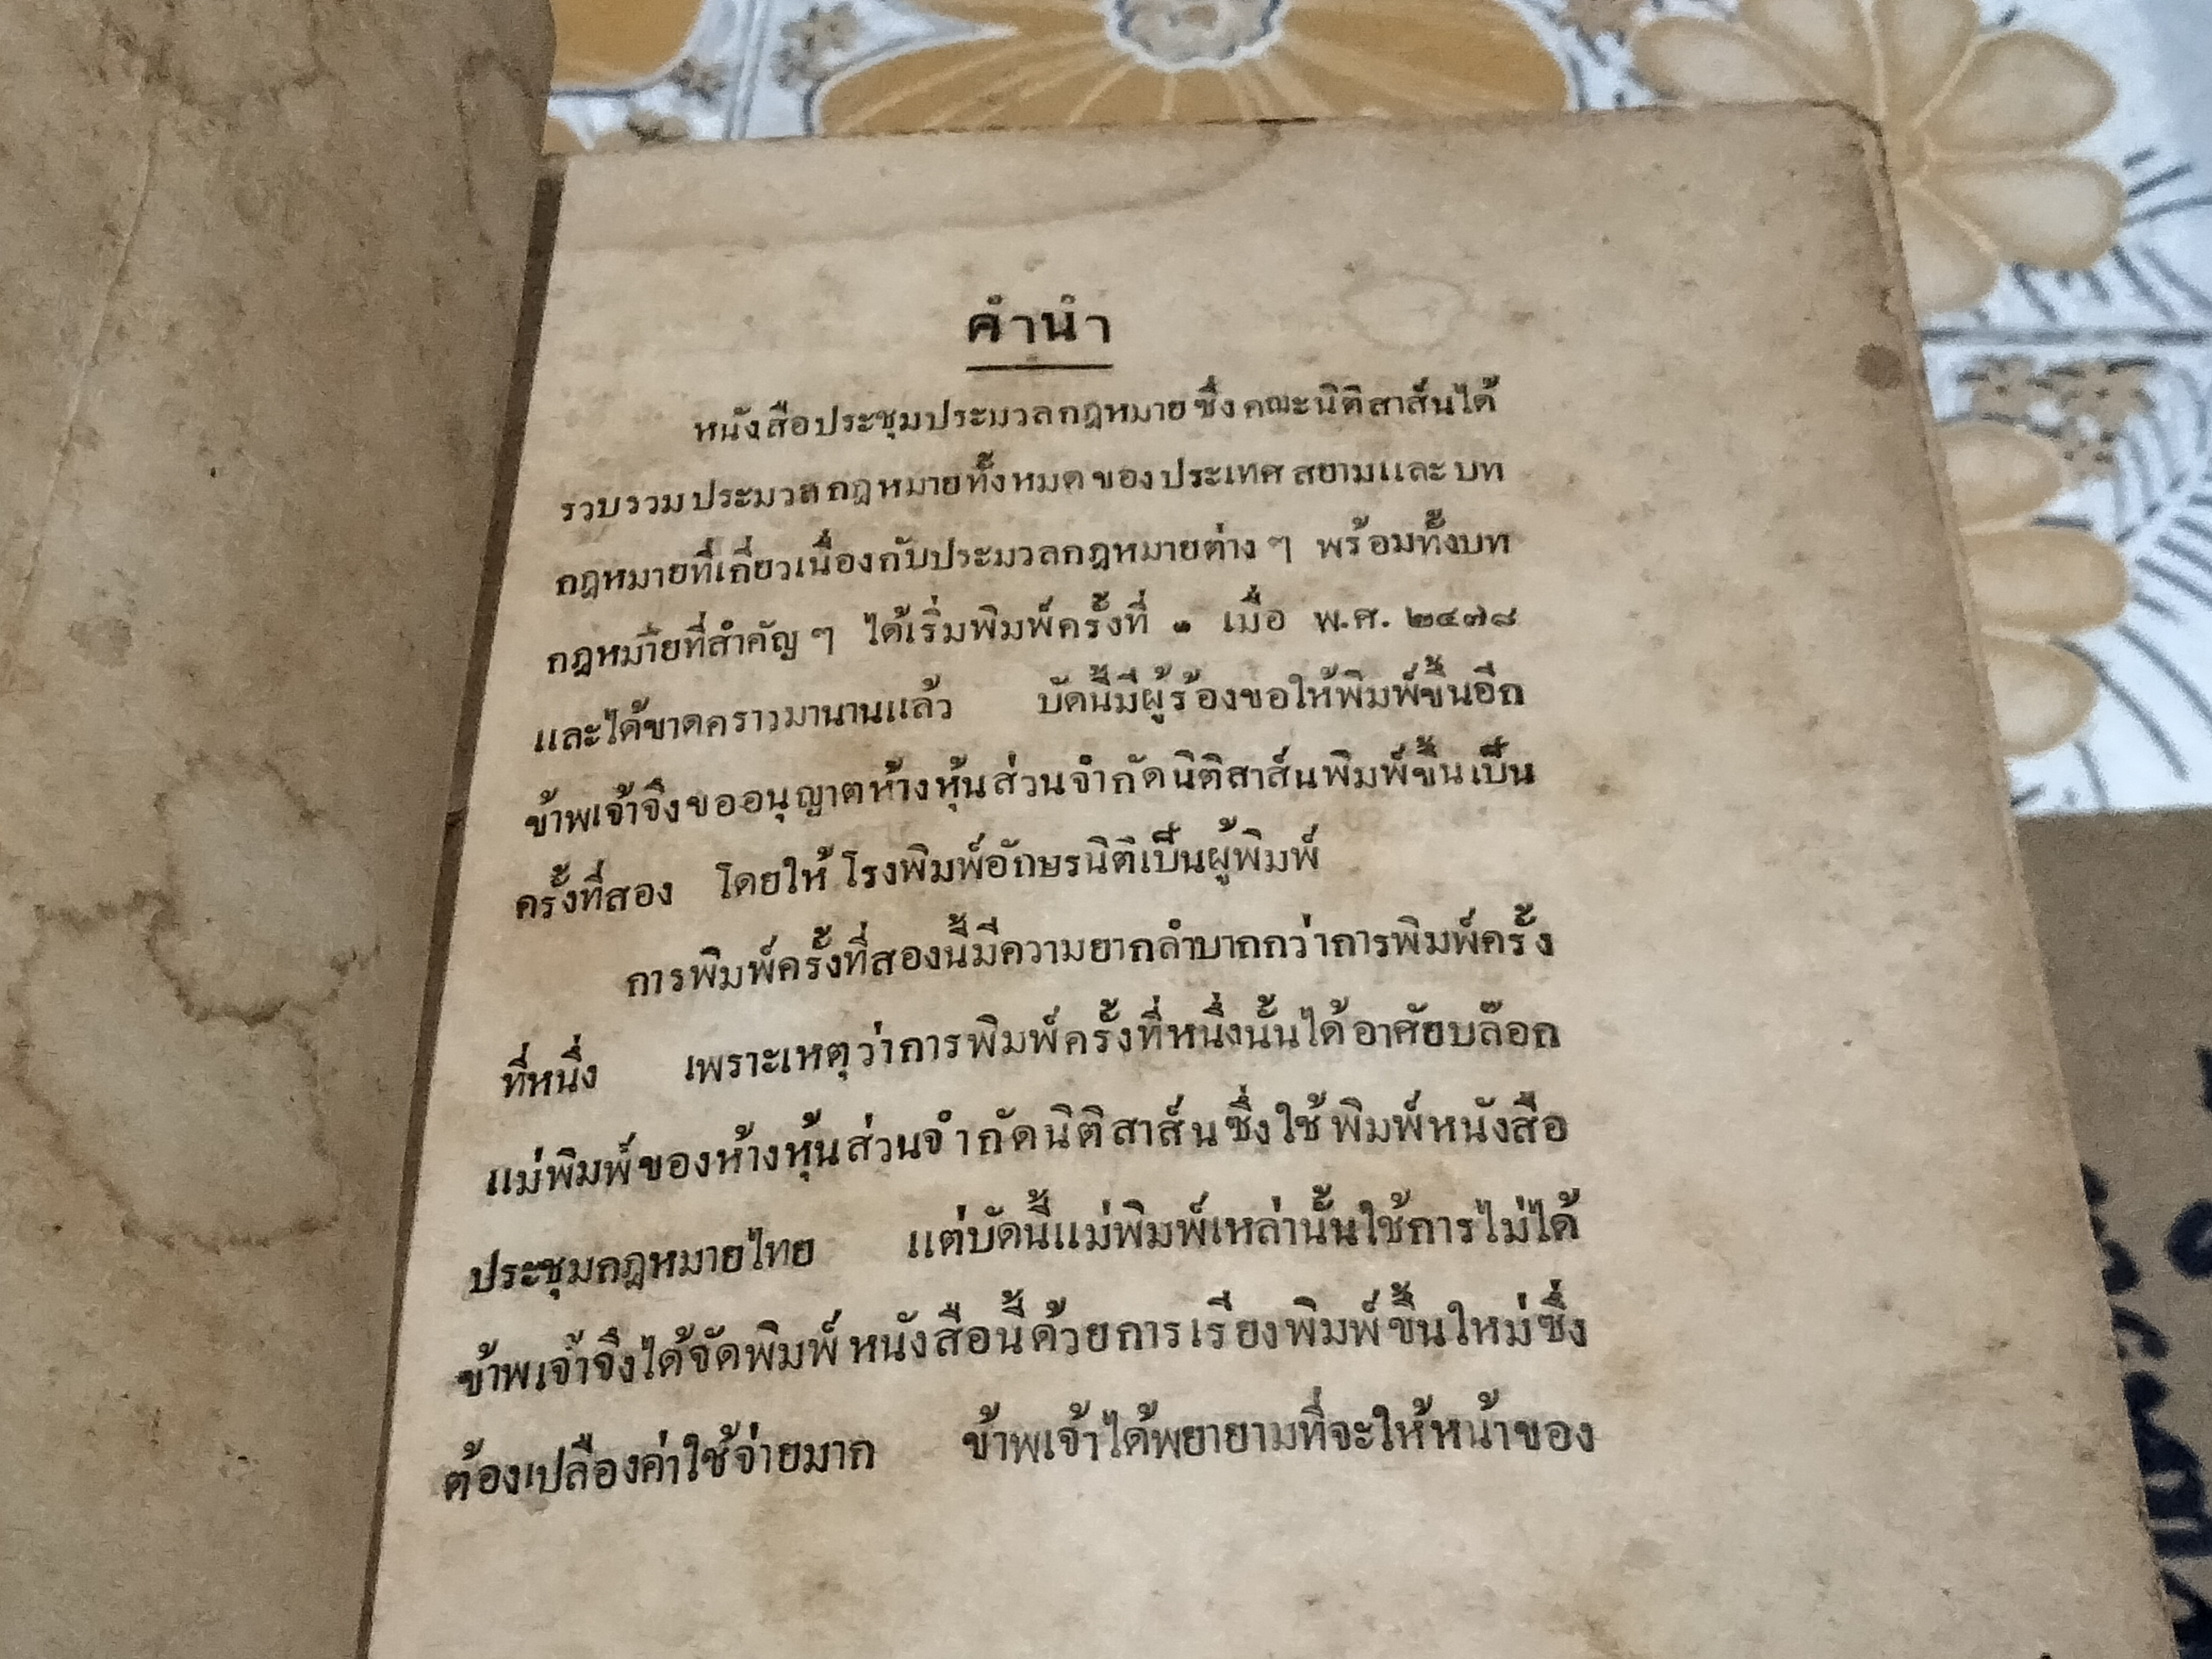 คำนำ
หนังสือประชุมประมวลกฎหมายซึ่งคณะนิติสาส์นได้
รวบรวมประมวลกฎหมายทั้งหมดของประเทศสยามและบท
กฎหมายที่เกี่ยวเนื่องกับประมวลกฎหมายต่าง ๆ พร้อมทั้งบท
กฎหมายที่สำคัญ ๆ ได้เริ่มพิมพ์ครั้งที่ ๑ เมื่อ พ.ศ. ๒๔๗๘
และได้ขาดคราวมานานแล้ว บัดนี้มีผู้ร้องขอให้พิมพ์ขึ้นอีก
ข้าพเจ้าจึงขออนุญาตห้างหุ้นส่วนจำกัดนิติสาส์นพิมพ์ขึ้นเป็น
ครั้งที่สอง โดยให้โรงพิมพ์อักษรนิติเป็นผู้พิมพ์
การพิมพ์ครั้งที่สองนี้มีความยากลำบากกว่าการพิมพ์ครั้ง
ที่หนึ่ง เพราะเหตุว่าการพิมพ์ครั้งที่หนึ่งนั้นได้อาศัยบล๊อก
แม่พิมพ์ของห้างหุ้นส่วนจำกัดนิติสาส์นซึ่งใช้พิมพ์หนังสือ
ประชุมกฎหมายไทย แต่บัดนี้แม่พิมพ์เหล่านั้นใช้การไม่ได้
ข้าพเจ้าจึงได้จัดพิมพ์หนังสือนี้ด้วยการเรียงพิมพ์ขึ้นใหม่ซึ่ง
ต้องเปลืองค่าใช้จ่ายมาก ข้าพเจ้าได้พยายามที่จะให้หน้าของ